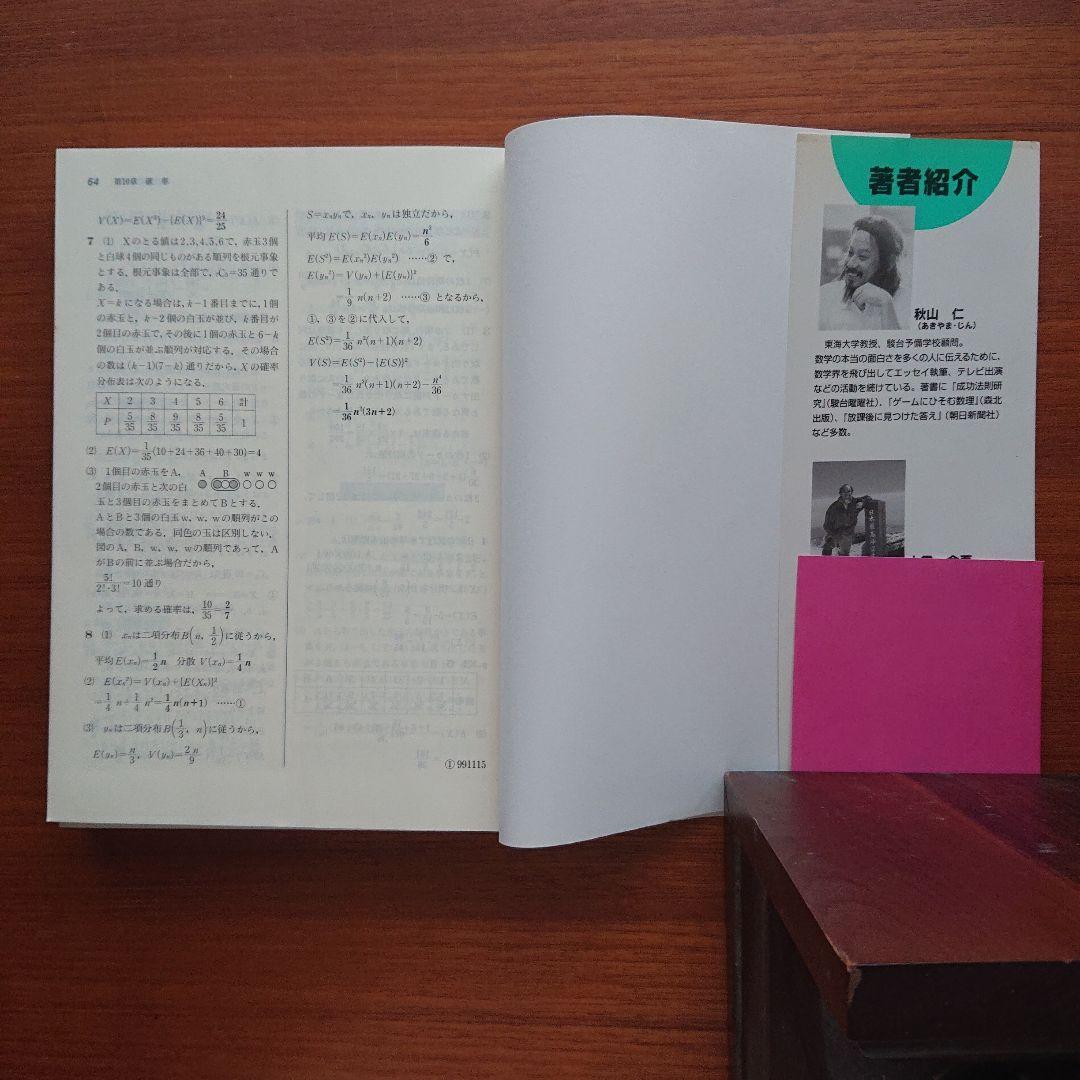 64 第10章 確 率
V(X)=E(X²)-{E(X)}²=24/25
7 (1) Xのとる値は2,3,4,5,6で, 赤玉3個
と白球4個の同じものがある順列を根元事象
とする. 根元事象は全部で, ₇C₃=35通りで
ある.
X=kになる場合は, k-1番目までに, 1個
の赤玉と, k-2個の白玉が並び, k番目が
2個目の赤玉で, その後に1個の赤玉と6-k
個の白玉が並ぶ順列が対応する. その場合
の数は(k-1)(7-k)通りだから, Xの確率
分布表は次のようになる.
X 2 3 4 5 6 計
P 5/35 8/35 9/35 8/35 5/35 1
(2) E(X)=1/35(10+24+36+40+30)=4
(3) 1個目の赤玉をA, A B w w w
2個目の赤玉と次の白
玉と3個目の赤玉をまとめてBとする.
AとBと3個の白玉w, w, wの順列がこの
場合の数である. 同色の玉は区別しない.
図のA, B, w, w, wの順列であって, A
がBの前に並ぶ場合だから,
5!/2!·3!=10通り
よって, 求める確率は, 10/35=2/7
8 (1) xₙは二項分布B(n, 1/2)に従うから,
平均E(xₙ)=1/2 n 分散V(xₙ)=1/4 n
(2) E(xₙ²)=V(xₙ)+{E(Xₙ)}²
=1/4 n+1/4 n²=1/4 n(n+1) ……①
(3) yₙは二項分布B(1/3, n)に従うから,
E(yₙ)=n/3, V(yₙ)=2n/9
S=xₙyₙで, xₙ, yₙは独立だから,
平均E(S)=E(xₙ)E(yₙ)=n²/6
E(S²)=E(xₙ²)E(yₙ²) ……② で,
E(yₙ²)=V(yₙ)+{E(yₙ)}²
=1/9 n(n+2) ……③ となるから,
①, ③を②に代入して,
E(S²)=1/36 n²(n+1)(n+2)
V(S)=E(S²)-{E(S)}²
=1/36 n²(n+1)(n+2)-n⁴/36
=1/36 n²(3n+2)
① 991115
著者紹介
秋山 仁
(あきやま・じん)
東海大学教授、駿台予備学校顧問。
数学の本当の面白さを多くの人に伝えるために、
数学界を飛び出してエッセイ執筆、テレビ出演
などの活動を続けている。著書に「成功法則研
究」(駿台曜曜社)、「ゲームにひそむ数理」(森北
出版)、「放課後に見つけた答え」(朝日新聞社)
など多数。